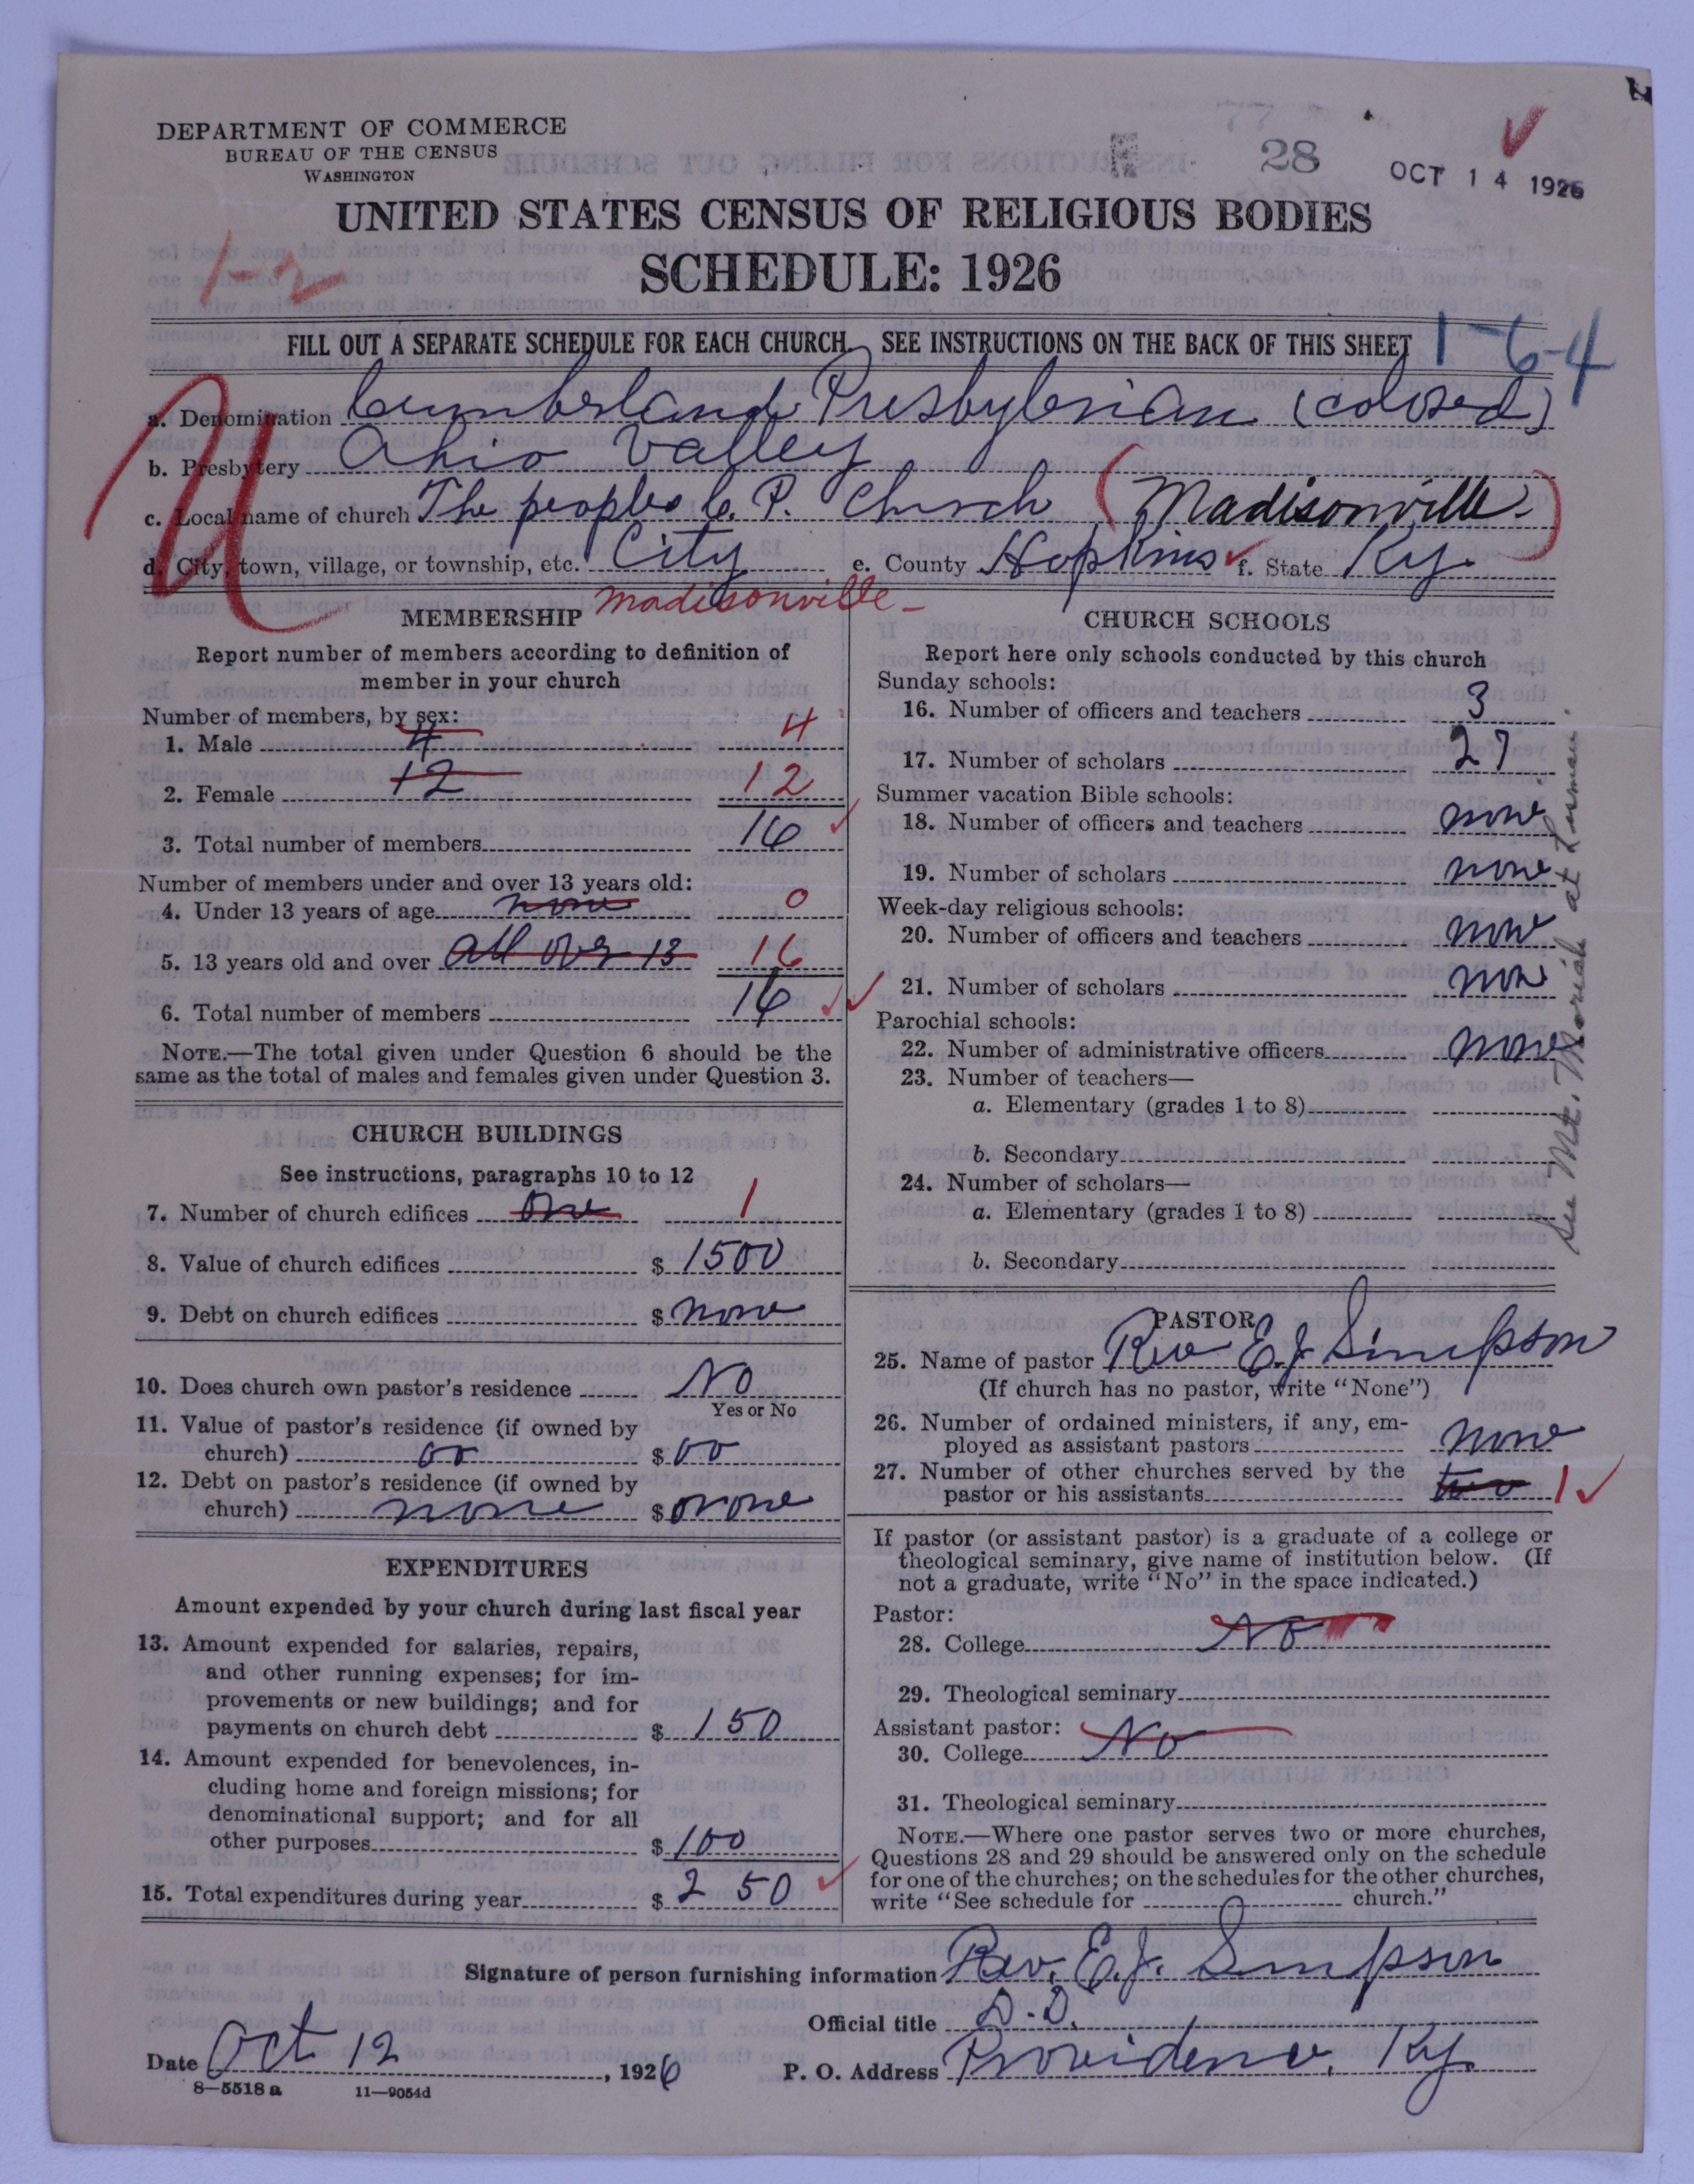 DEPARTMENT OF COMMERCE
BUREAU OF THE CENSUS
WASHINGTON
28
OCT 14 1926
UNITED STATES CENSUS OF RELIGIOUS BODIES
SCHEDULE: 1926
1-2
FILL OUT A SEPARATE SCHEDULE FOR EACH CHURCH. SEE INSTRUCTIONS ON THE BACK OF THIS SHEET
1-6-4
a. Denomination Cumberland Presbyterian (colored)
b. Presbytery Ohio Valley
c. Local name of church The peoples C. P. Church (Madisonville)
d. City, town, village, or township, etc. City e. County Hopkins f. State Ky.
Madisonville
MEMBERSHIP
Report number of members according to definition of
member in your church
Number of members, by sex:
1. Male 4 4
2. Female 12 12
3. Total number of members 16
Number of members under and over 13 years old:
4. Under 13 years of age none 0
5. 13 years old and over all over 13 16
6. Total number of members 16
NOTE.—The total given under Question 6 should be the
same as the total of males and females given under Question 3.
CHURCH BUILDINGS
See instructions, paragraphs 10 to 12
7. Number of church edifices One 1
8. Value of church edifices $ 1500
9. Debt on church edifices $ none
10. Does church own pastor's residence No
Yes or No
11. Value of pastor's residence (if owned by
church) 00 $ 00
12. Debt on pastor's residence (if owned by
church) none $ none
EXPENDITURES
Amount expended by your church during last fiscal year
13. Amount expended for salaries, repairs,
and other running expenses; for im-
provements or new buildings; and for
payments on church debt $ 150
14. Amount expended for benevolences, in-
cluding home and foreign missions; for
denominational support; and for all
other purposes $ 100
15. Total expenditures during year $ 250
CHURCH SCHOOLS
Report here only schools conducted by this church
Sunday schools:
16. Number of officers and teachers 3
17. Number of scholars 27
Summer vacation Bible schools:
18. Number of officers and teachers none
19. Number of scholars none
Week-day religious schools:
20. Number of officers and teachers none
21. Number of scholars none
Parochial schools:
22. Number of administrative officers none
23. Number of teachers—
a. Elementary (grades 1 to 8)
b. Secondary
24. Number of scholars—
a. Elementary (grades 1 to 8)
b. Secondary
See Mt. Moriah at
PASTOR
25. Name of pastor Rev E. J. Simpson
(If church has no pastor, write "None")
26. Number of ordained ministers, if any, em-
ployed as assistant pastors none
27. Number of other churches served by the
pastor or his assistants two 1
If pastor (or assistant pastor) is a graduate of a college or
theological seminary, give name of institution below. (If
not a graduate, write "No" in the space indicated.)
Pastor:
28. College No
29. Theological seminary
Assistant pastor:
30. College No
31. Theological seminary
NOTE.—Where one pastor serves two or more churches,
Questions 28 and 29 should be answered only on the schedule
for one of the churches; on the schedules for the other churches,
write "See schedule for church."
Signature of person furnishing information Rev. E. J. Simpson
Official title D. D.
Date Oct 12, 1926 P. O. Address Providence, Ky.
8—5518 a 11—9054d